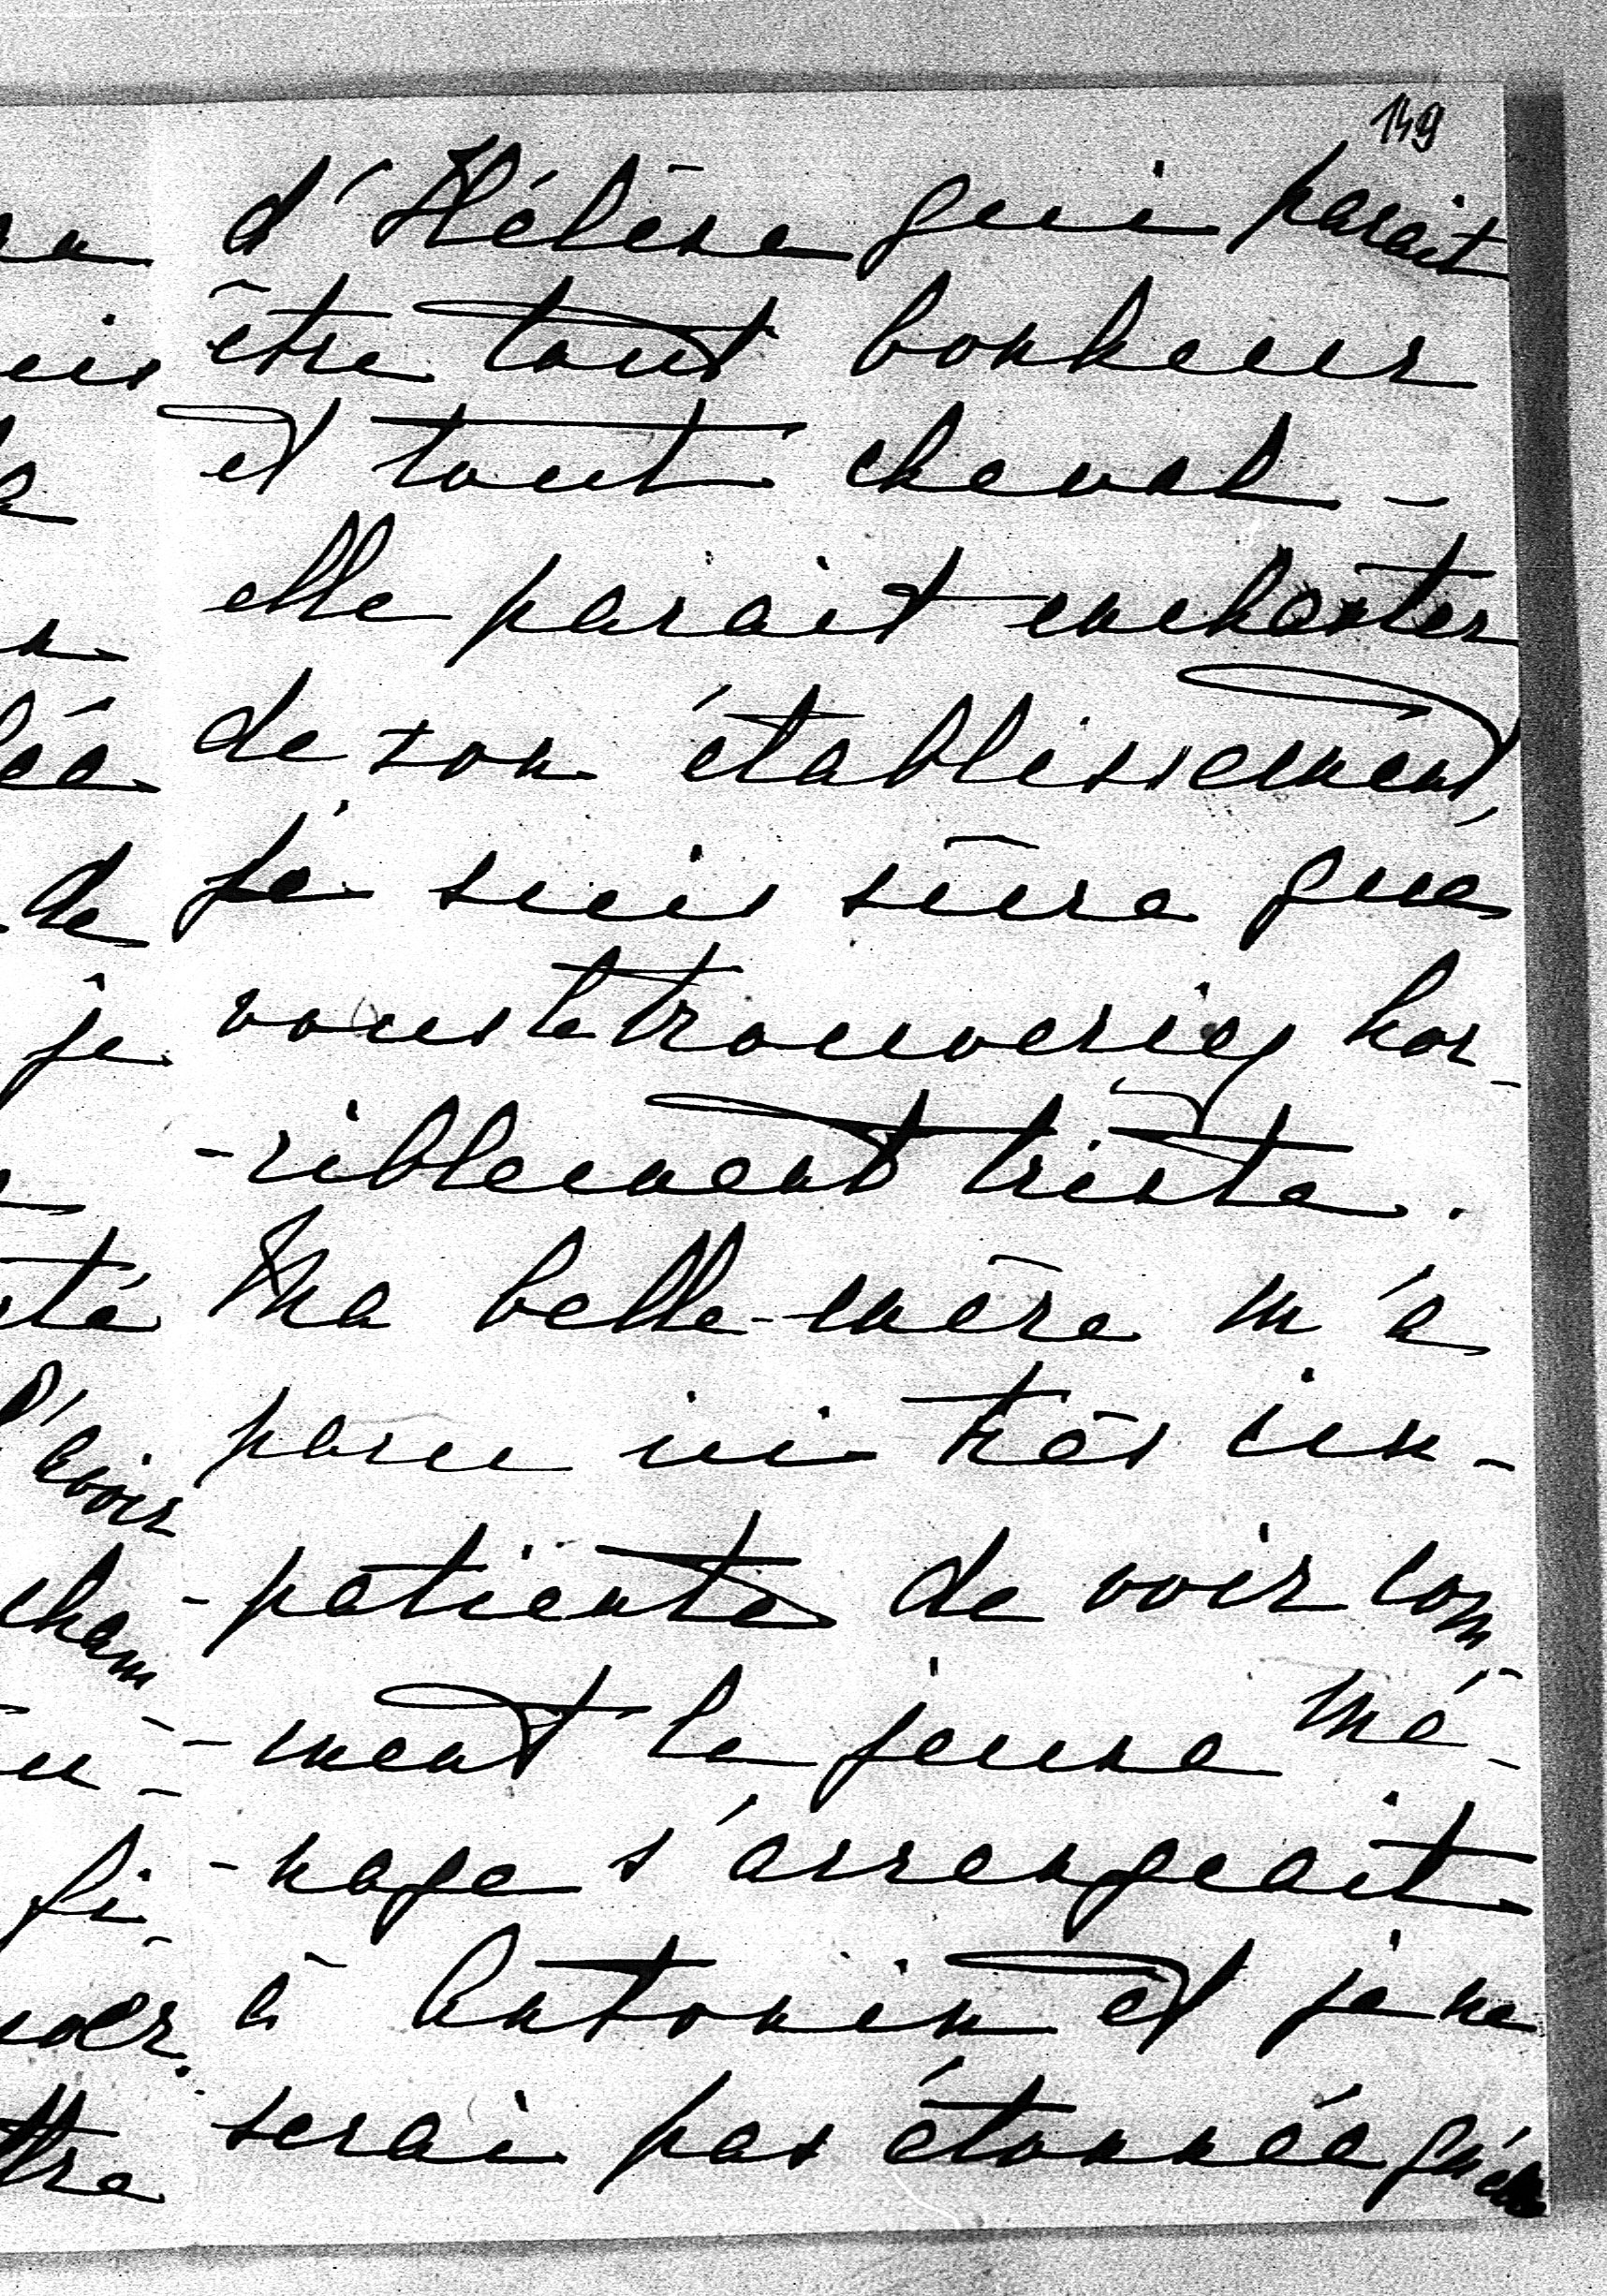 149
d'Hélène qui parait
être tout bonheur
et tout cheval -
elle parait enchanter
de son établissement,
je suis sûre que
vous le trouveriez hor-
-riblement triste.
Ma belle-mère m'a
paru ici très im-
-patiente de voir com
-ment le jeune mé-
-nage s'arrangeait
à Antonin et je ne
serai pas étonnée qu'elle
je
de
l'avoir
cham